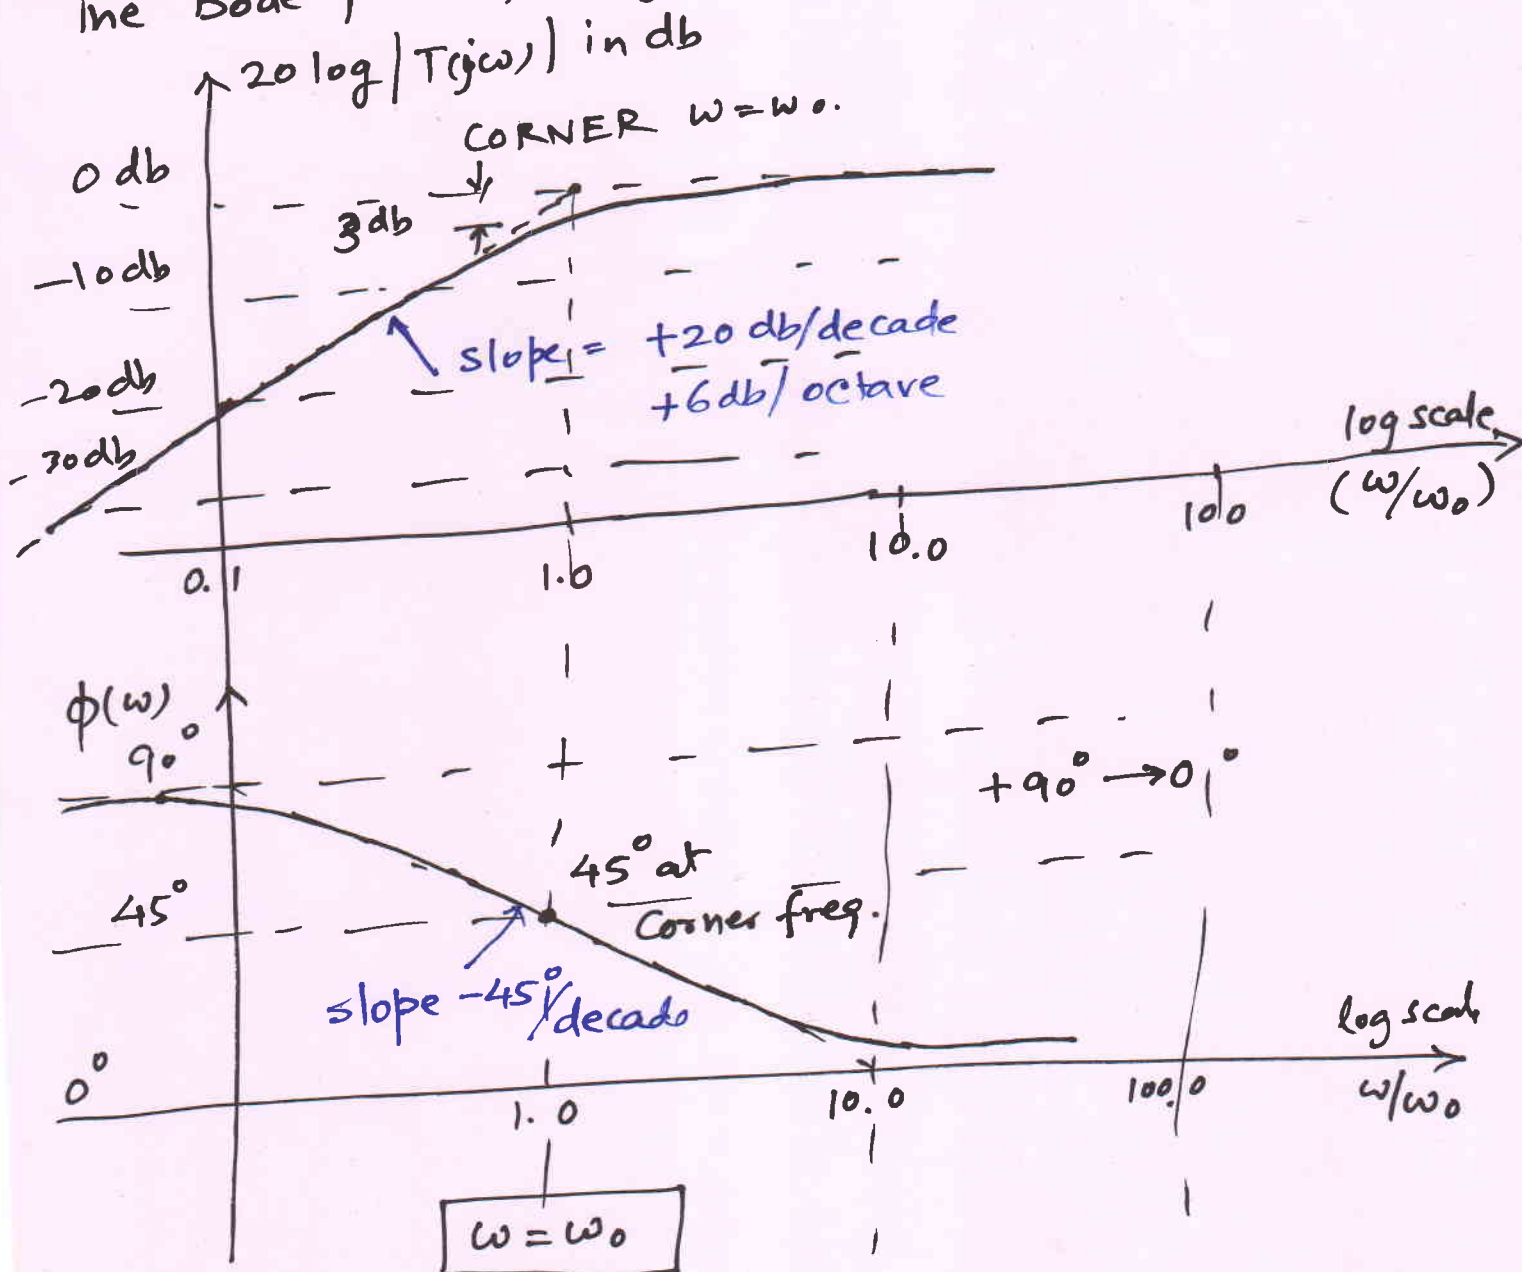 The Bode
20 log |T(jω)| in db
CORNER ω=ω₀.
0 db
3 db
-10 db
slope = +20 db/decade
+6 db/octave
-20 db
-30 db
log scale
(ω/ω₀)
0.1
1.0
10.0
100
φ(ω)
90°
+90° → 0°
45° at
Corner freq.
45°
slope -45°/decade
0°
log scale
1.0
10.0
100.0
ω/ω₀
ω = ω₀